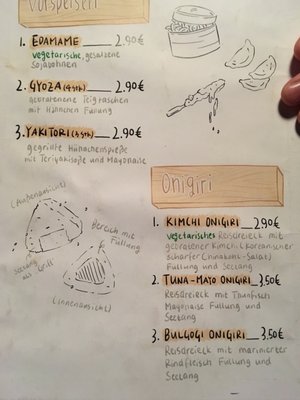 Vorspeisen
1. EDAMAME 2.90€
vegetarische, gesalzene
Sojabohnen
2. GYOZA (4 stk) 2.90€
gebratene Teigtaschen
mit Hähnchen Füllung
3. YAKITORI (3 stk) 2.90€
gegrillte Hühnchenspieße
mit Teriyakisoße und Mayonaise
(Außenansicht)
Bereich mit
Füllung
Seetang
als Griff
(Innenansicht)
Onigiri
1. KIMCHI ONIGIRI 2,90€
vegetarisches Reisdreieck mit
gebratener Kimchi (koreanischer
scharfer Chinakohl-Salat)
Füllung und Seetang
2. TUNA-MAYO ONIGIRI 3,50€
Reisdreieck mit Thunfisch
Mayonaise Füllung und
Seetang
3. BULGOGI ONIGIRI 3,50€
Reisdreieck mit marinierter
Rindfleisch Füllung und
Seetang